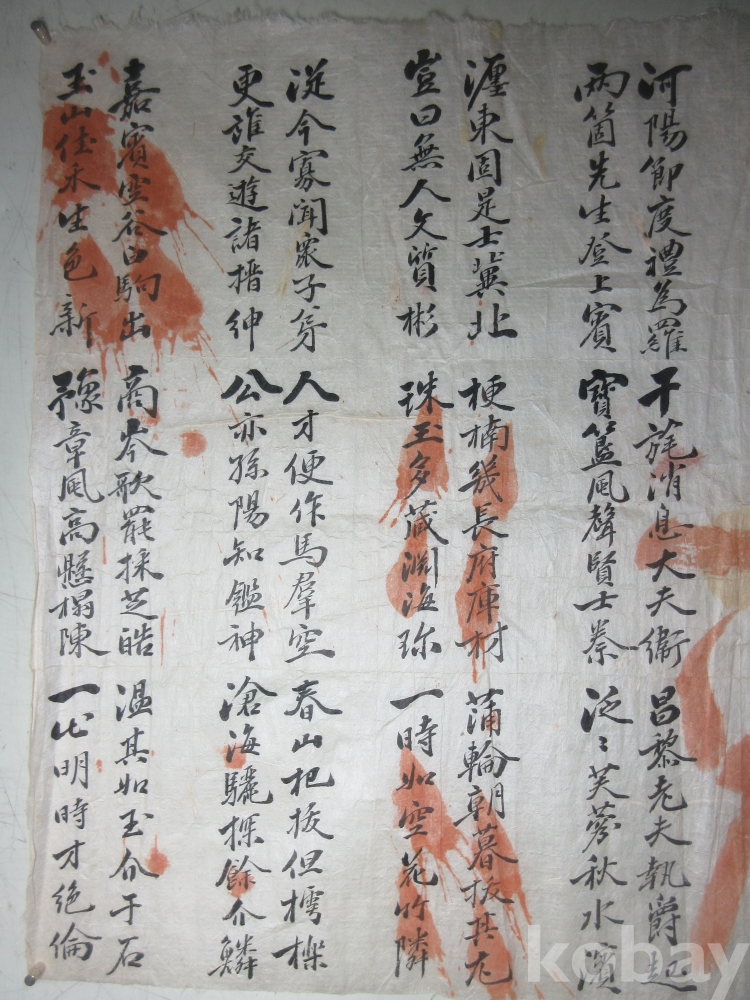 河陽節度禮為羅 干旄消息大夫衛 昌黎老夫執爵起
兩箇先生登上賓 寶簋風聲賢士秦 泛〻芙蓉秋水濱
瀍東固是士冀北 梗楠幾長府庫材 蒲輪朝暮拔其尤
豈曰無人文質彬 珠玉多藏淵海珎 一時如空花竹隣
從今寡聞衆子 人才便作馬羣空 春山杞梓但樗櫟
更誰交遊諸搢紳 公亦孫陽知鑑神 滄海驪探餘介鱗
嘉賓空谷白駒出 商岑歌罷採芝皓 溫其如玉介于石
玉山佳禾生色新 豫章風高懸榻陳 一代明時才絶倫
kobay